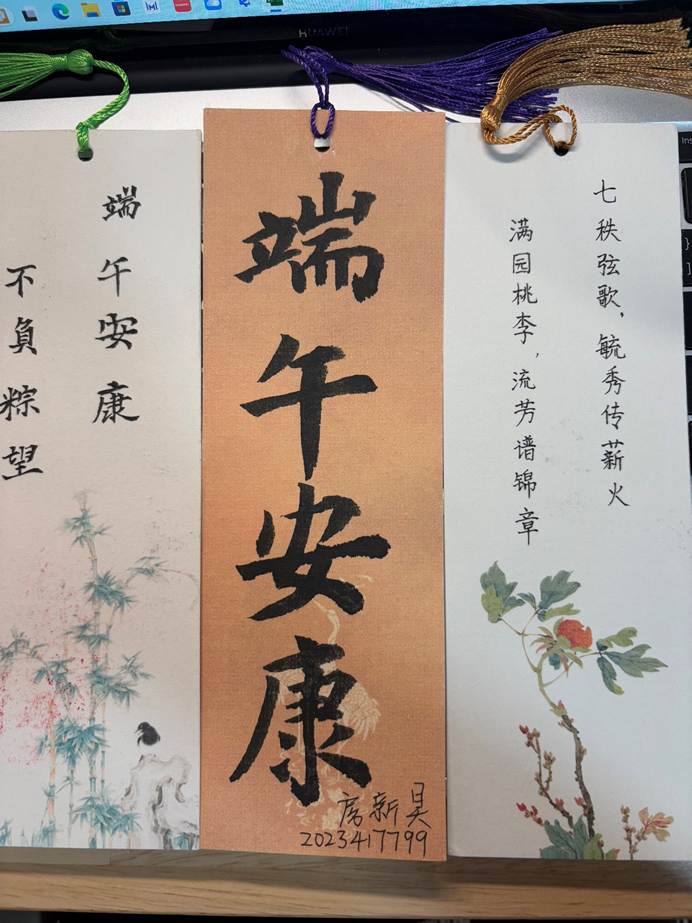 HUAWEI
端午安康
不負粽望
端午安康
房新昊
2023417799
七秩弦歌，毓秀传薪火
满园桃李，流芳谱锦章
Ins